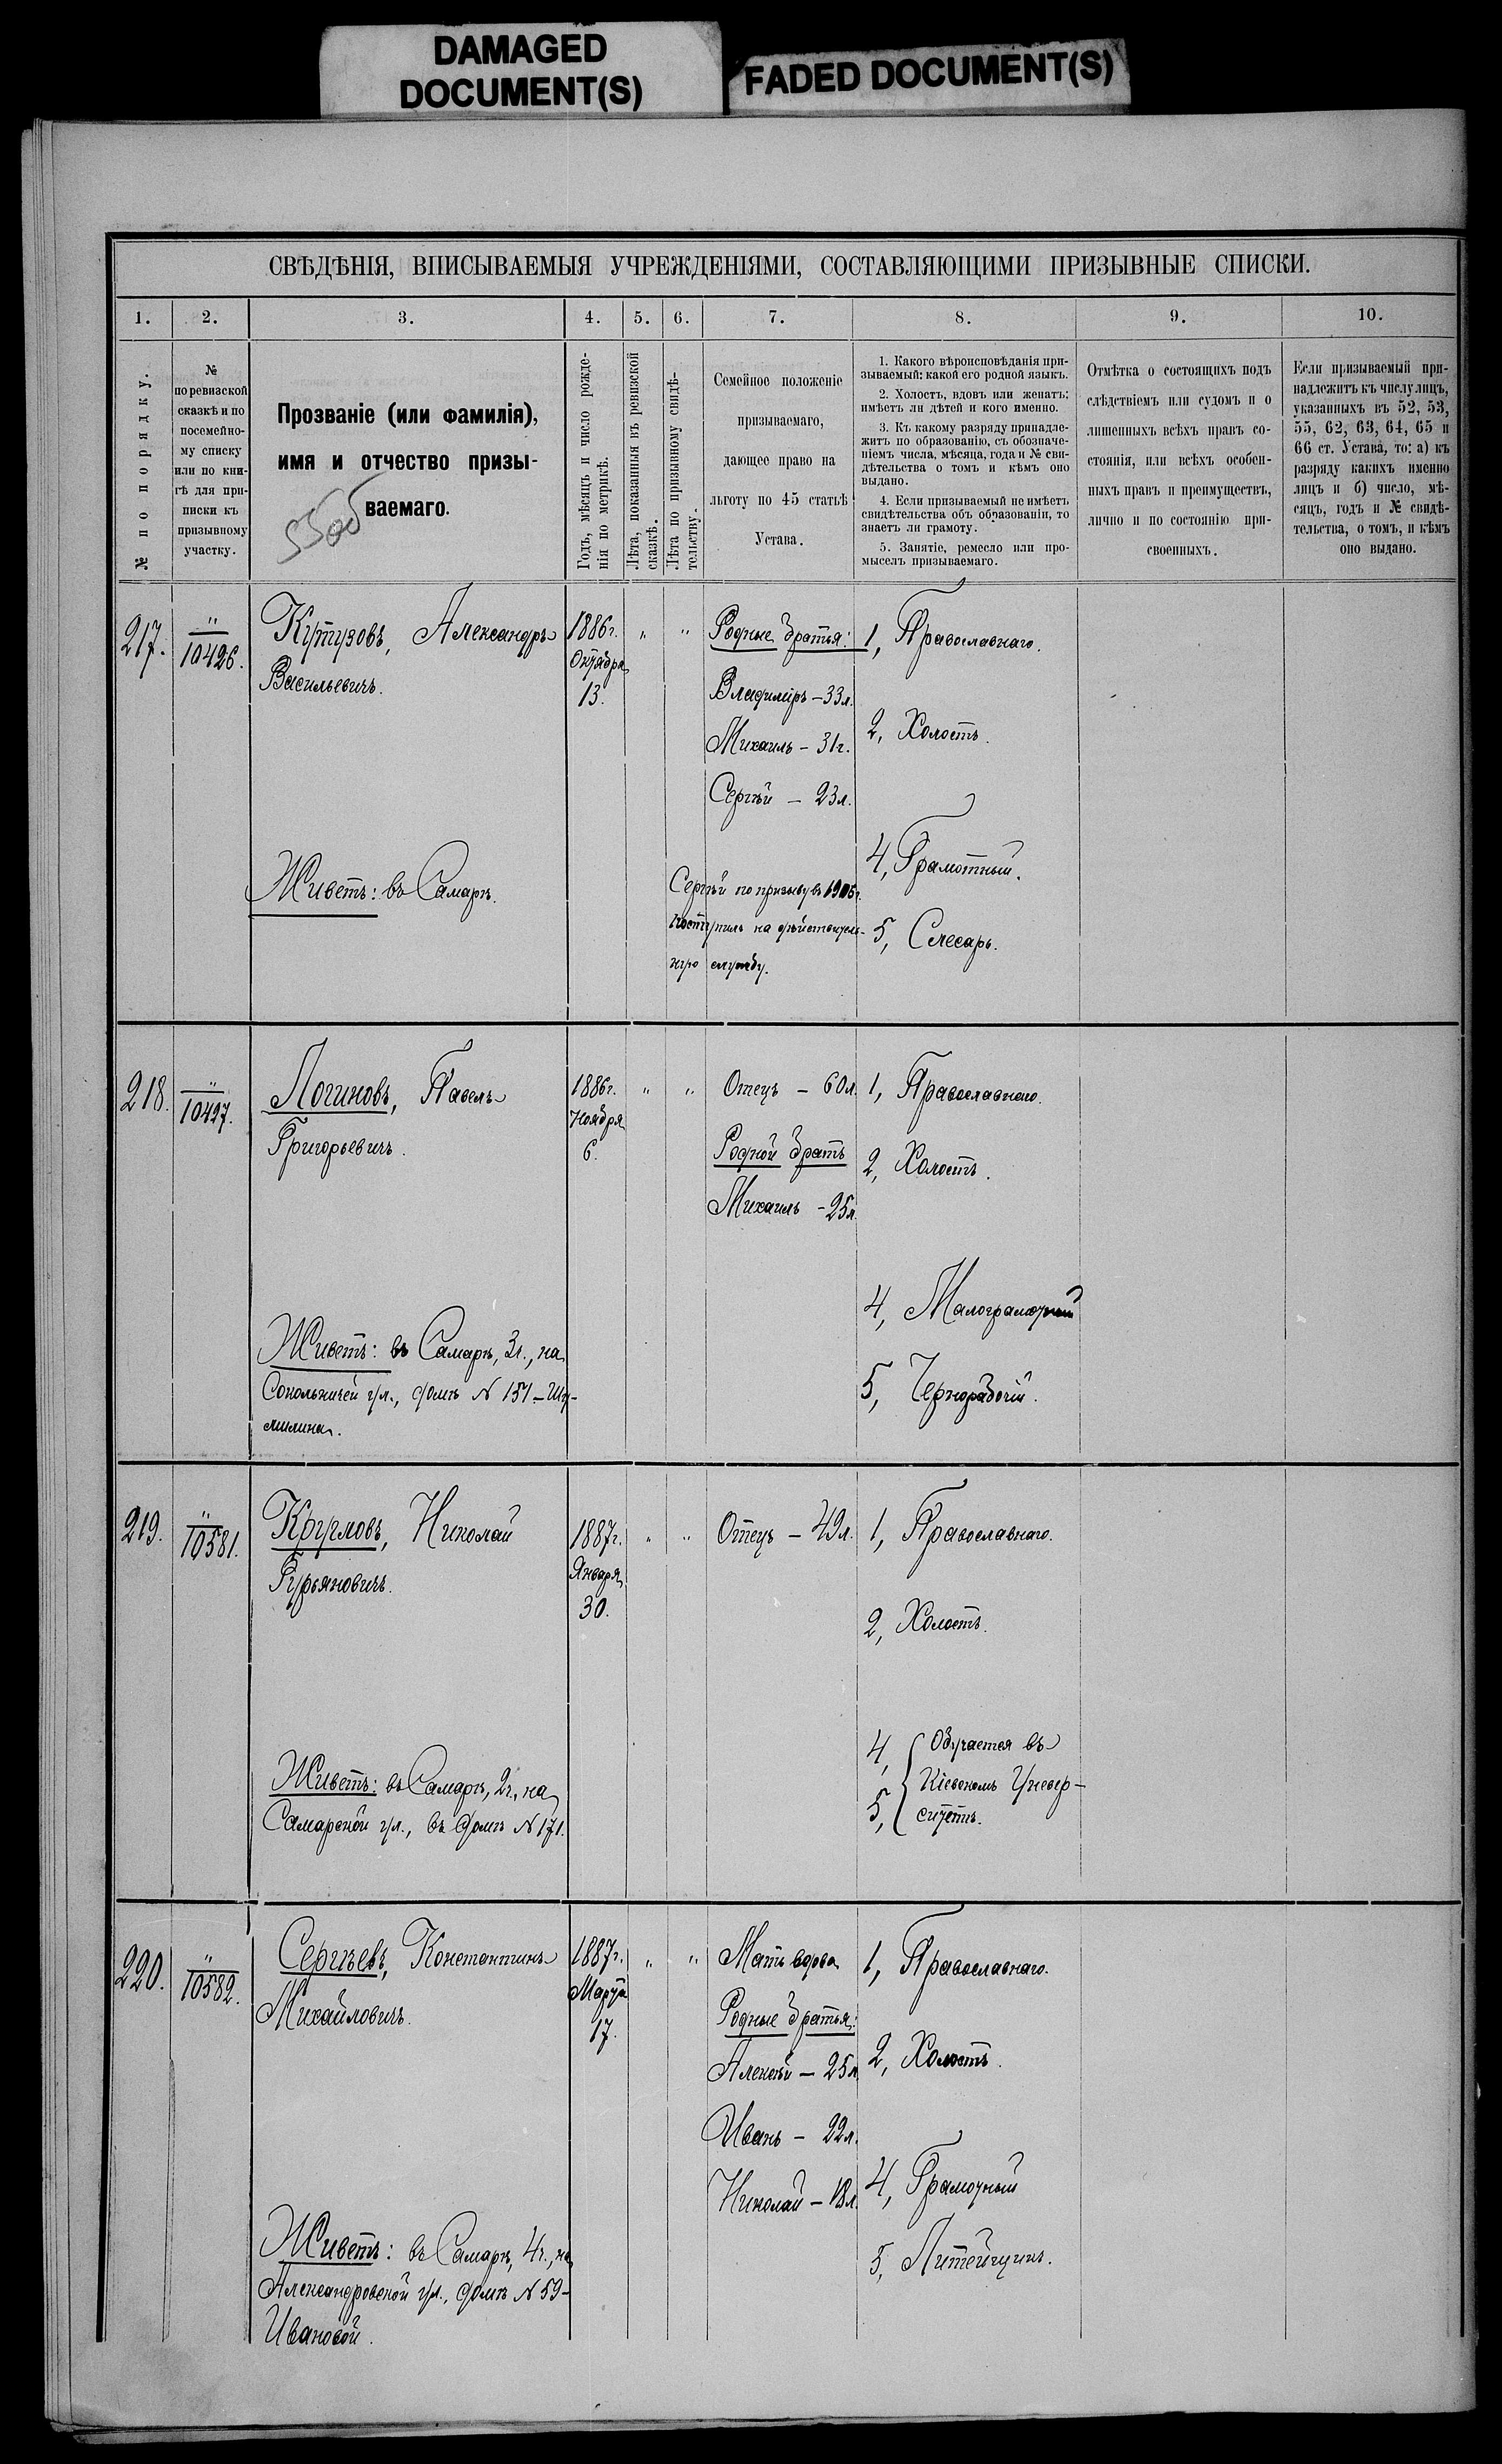 DAMAGED
DOCUMENT(S)
FADED DOCUMENT(S)
СВѢДѢНІЯ, ВПИСЫВАЕМЫЯ УЧРЕЖДЕНІЯМИ, СОСТАВЛЯЮЩИМИ ПРИЗЫВНЫЕ СПИСКИ.
1. 2. 3. 4. 5. 6. 7. 8. 9. 10.
№ по порядку.
№
по ревизской
сказкѣ и по
посемейно-
му списку
или по кни-
гѣ для при-
писки къ
призывному
участку.
Прозваніе (или фамилія),
имя и отчество призы-
ваемаго.
Годъ, мѣсяцъ и число рожде-
нія по метрикѣ.
Лѣта, показанныя въ ревизской
сказкѣ.
Лѣта по призывному свидѣ-
тельству.
Семейное положеніе
призываемаго,
дающее право на
льготу по 45 статьѣ
Устава.
1. Какого вѣроисповѣданія при-
зываемый: какой его родной языкъ.
2. Холостъ, вдовъ или женатъ;
имѣетъ ли дѣтей и кого именно.
3. Къ какому разряду принадле-
житъ по образованію, съ обозначе-
ніемъ числа, мѣсяца, года и № сви-
дѣтельства о томъ и кѣмъ оно
выдано.
4. Если призываемый не имѣетъ
свидѣтельства объ образованіи, то
знаетъ ли грамоту.
5. Занятіе, ремесло или про-
мыселъ призываемаго.
Отмѣтка о состоящихъ подъ
слѣдствіемъ или судомъ и о
лишенныхъ всѣхъ правъ со-
стоянія, или всѣхъ особен-
ныхъ правъ и преимуществъ,
лично и по состоянію при-
своенныхъ.
Если призываемый при-
надлежитъ къ числу лицъ,
указанныхъ въ 52, 53,
55, 62, 63, 64, 65 и
66 ст. Устава, то: а) къ
разряду какихъ именно
лицъ и б) число, мѣ-
сяцъ, годъ и № свидѣ-
тельства, о томъ, и кѣмъ
оно выдано.
217.
"
10426.
Кутузовъ, Александръ
Васильевичъ.
Живетъ: въ Самарѣ.
1886г.
Октября
13.
" "
Родные братья:
Владиміръ – 33л.
Михаилъ – 31г.
Сергѣй – 23л.
Сергѣй по призыву въ 1905г.
поступилъ на дѣйствитель-
ную службу.
1, Православнаго.
2, Холостъ.
4, Грамотный.
5, Слесарь.
218.
"
10427.
Логиновъ, Павелъ
Григорьевичъ.
Живетъ: въ Самарѣ, 3ч., на
Сокольничей ул., домъ № 151 – Шу-
милина.
1886г.
Ноября
6.
" "
Отецъ – 60л.
Родной братъ
Михаилъ – 25л.
1, Православнаго.
2, Холостъ.
4, Малограмотный
5, Чернорабочій.
219.
"
10581.
Кругловъ, Николай
Гурьяновичъ.
Живетъ: въ Самарѣ, 2ч., на
Самарской ул., въ домѣ № 171.
1887г.
Января
30.
" "
Отецъ – 49л.
1, Православнаго.
2, Холостъ.
4, Обучается въ
Кіевскомъ Универ-
5, ситетѣ.
220.
"
10582.
Сергѣевъ, Константинъ
Михайловичъ.
Живетъ: въ Самарѣ, 4ч., на
Александровской ул., домъ № 59 –
Ивановой.
1887г.
Марта
17.
" "
Мать вдова
Родные братья:
Алексѣй – 25л.
Иванъ – 22л.
Николай – 18л.
1, Православнаго.
2, Холостъ.
4, Грамотный
5, Литейщикъ.